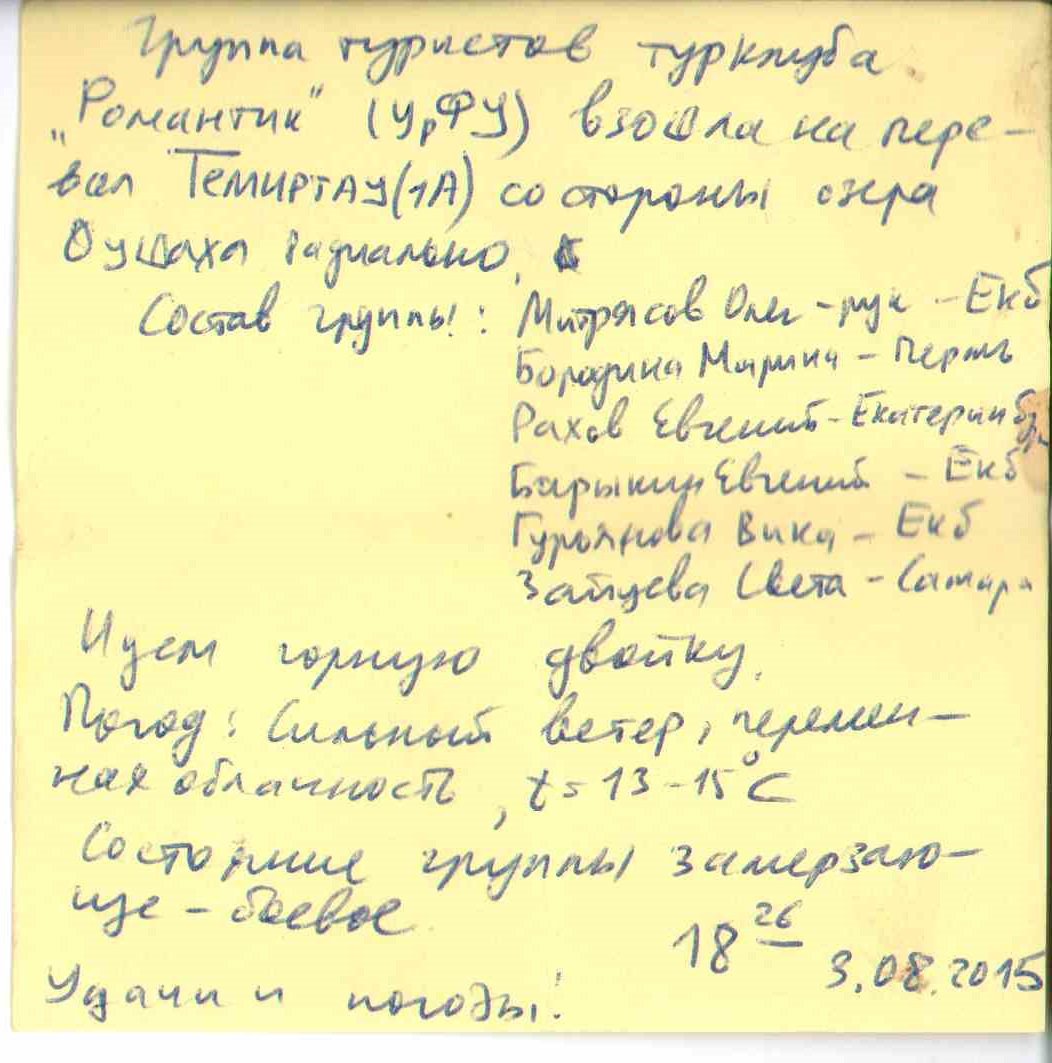 Группа туристов турклуба
„Романтик" (УрФУ) взошла на пере-
вал Темиртау(1А) со стороны озера
Душаха радиально.
Состав группы: Митрясов Олег - рук - Екб
Бородина Марина - Пермь
Рахов Евгений - Екатеринбург
Барыкин Евгений - Екб
Гурьянова Вика - Екб
Зайцева Света - Самара
Идем горную двойку.
Погода: Сильный ветер, перемен-
ная облачность, t = 13-15°С
Состояние группы замерзаю-
ще - боевое
18 26
3.08.2015
Удачи и погоды!